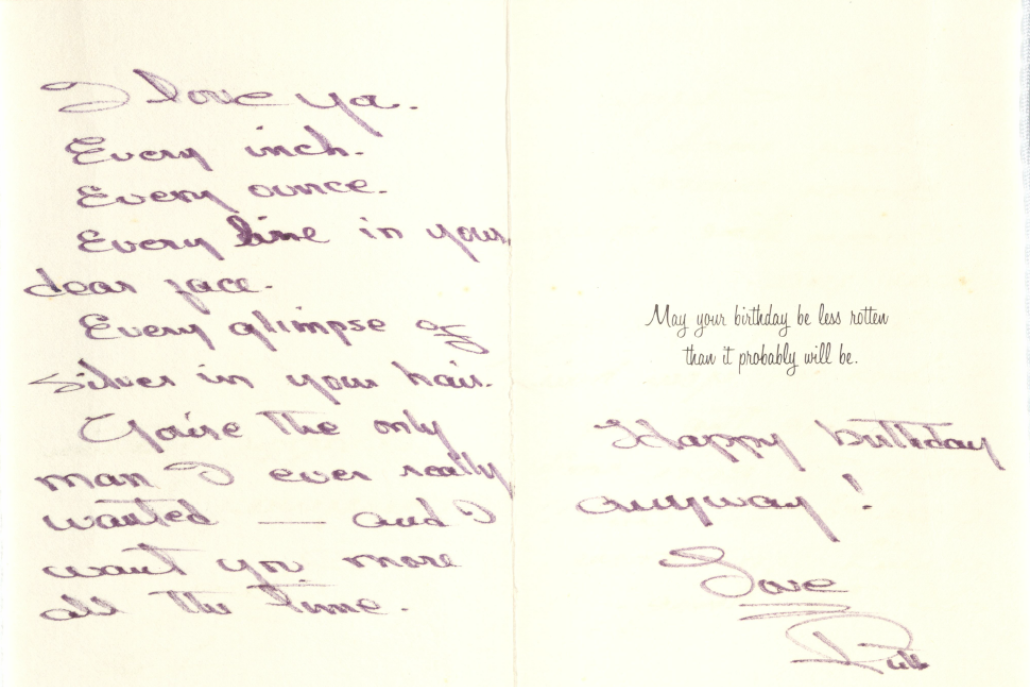 I love ya.
Every inch.
Every ounce.
Every line in your
dear face.
Every glimpse of
silver in your hair.
You're the only
man I ever really
wanted — and I
want you more
all the time.
May your birthday be less rotten
than it probably will be.
Happy birthday
anyway!
Love